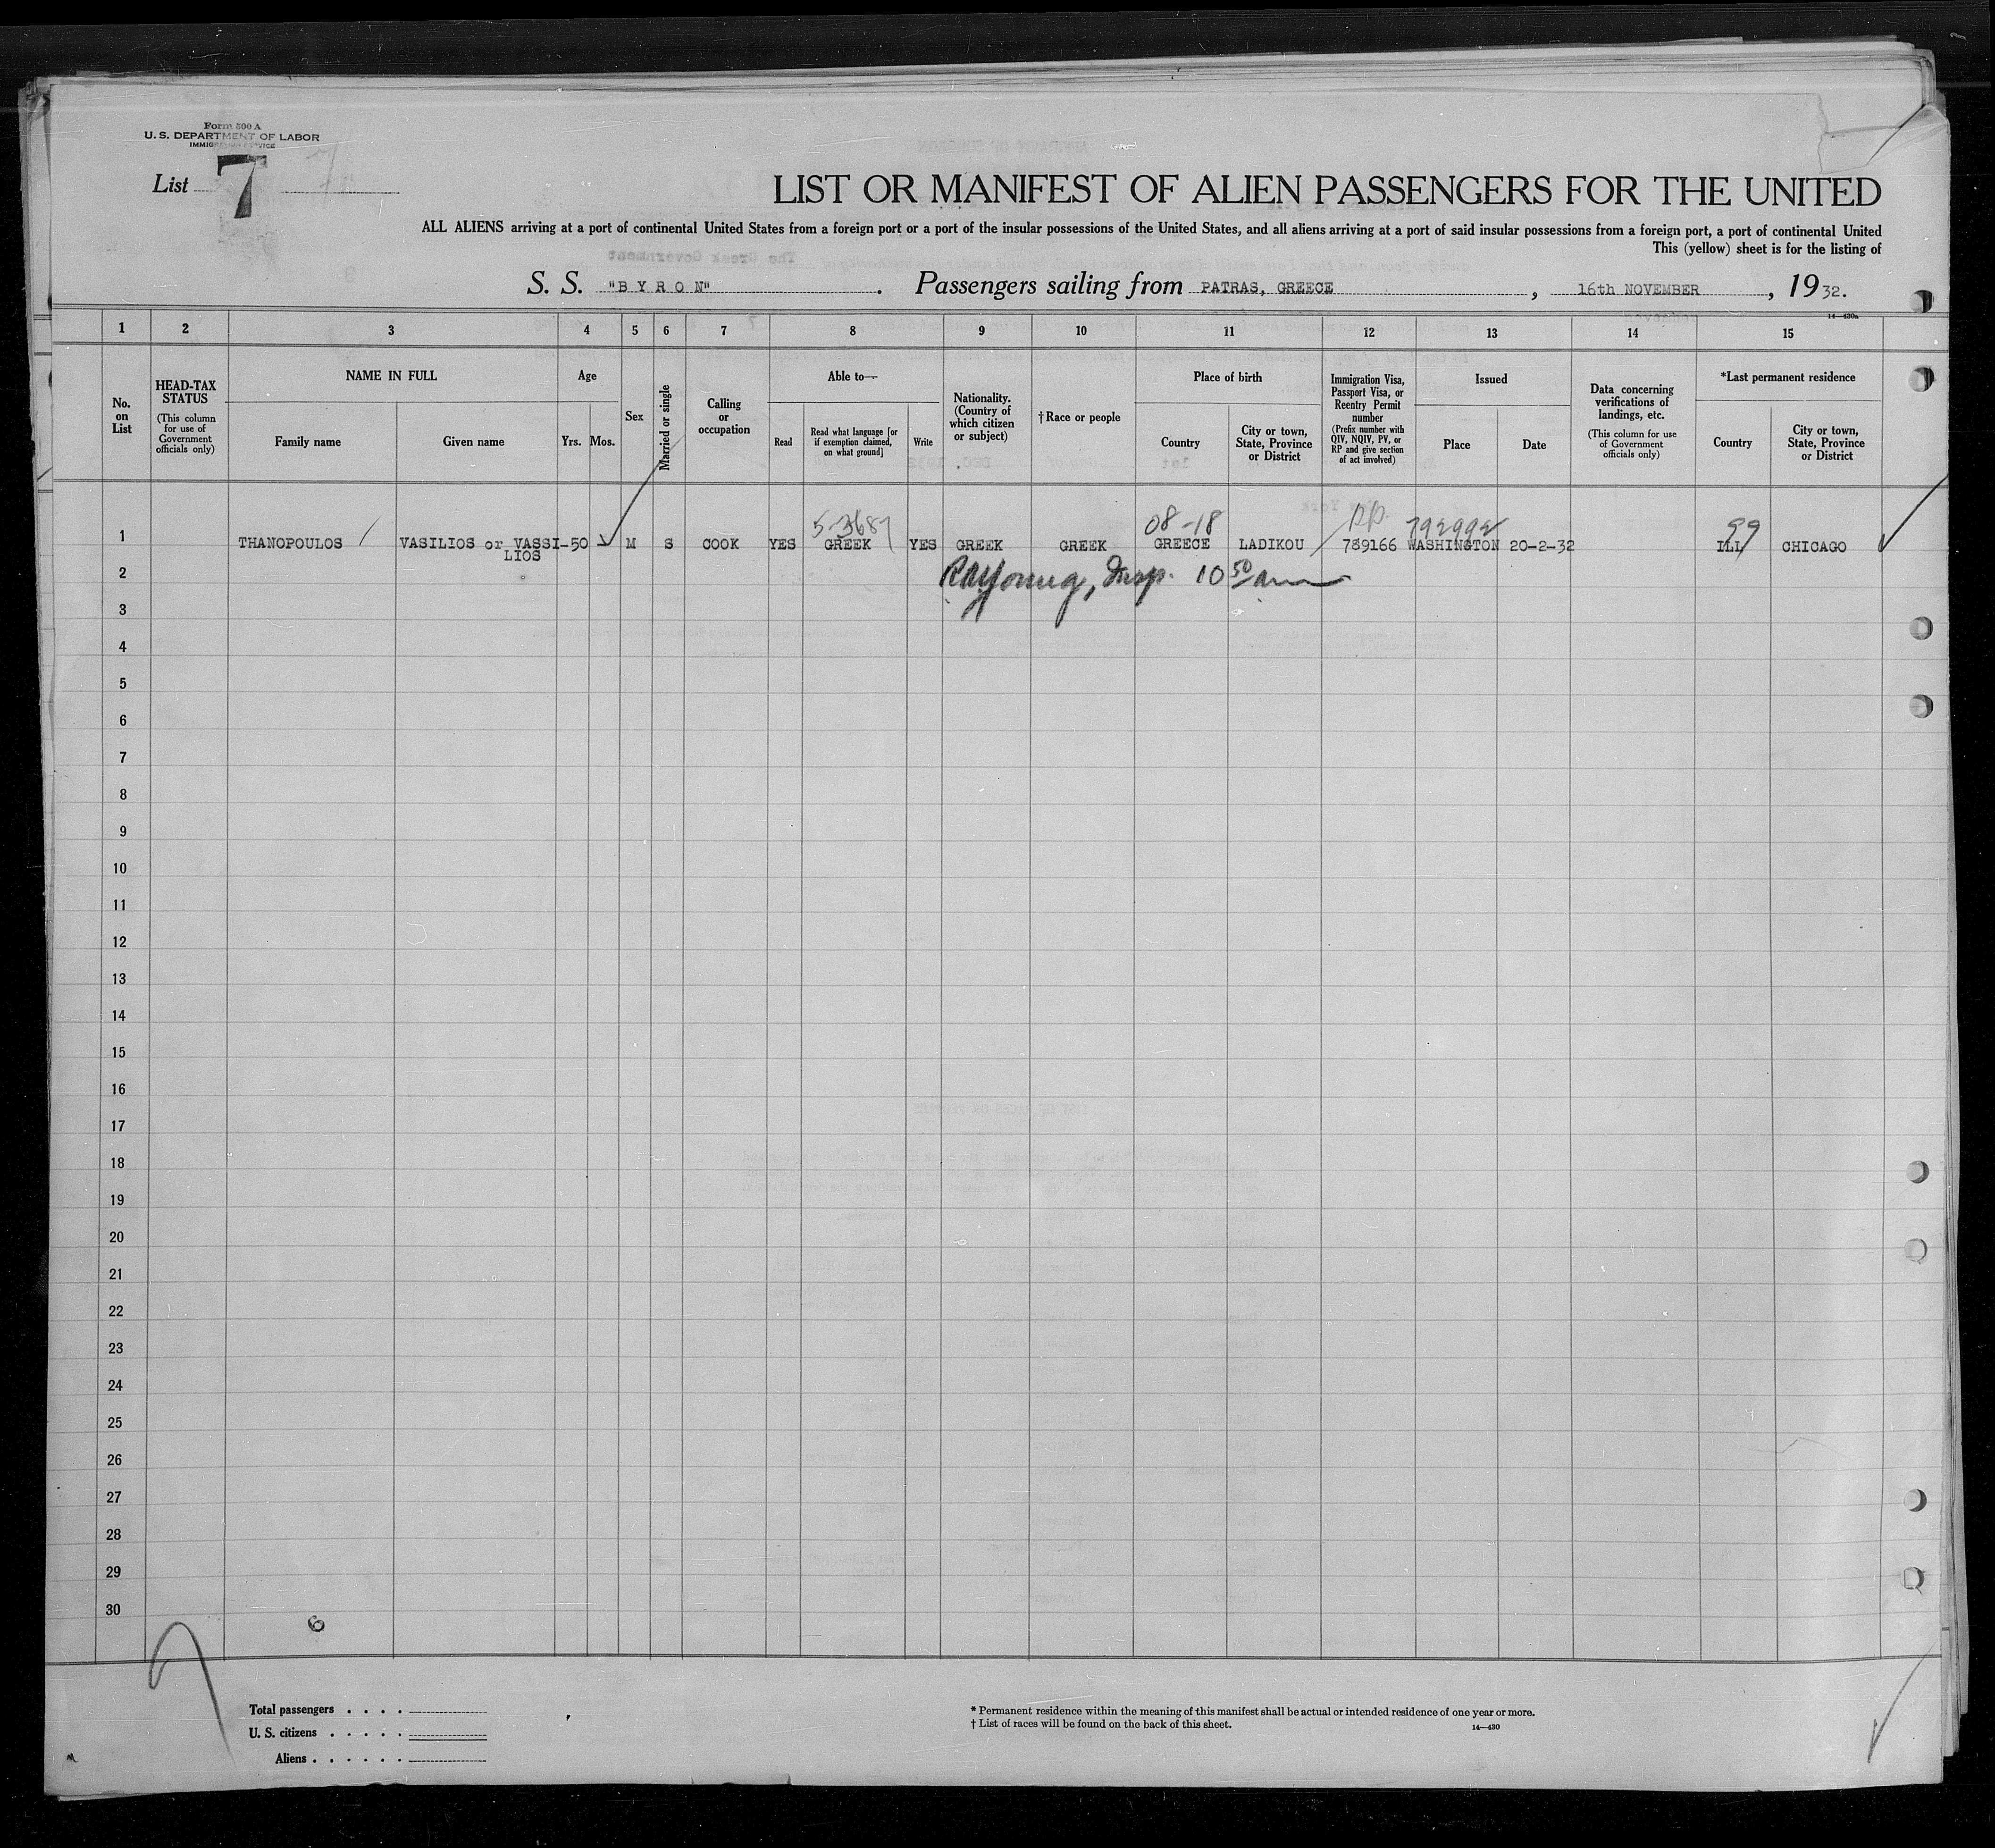 Form 500 A
U. S. DEPARTMENT OF LABOR
IMMIGRATION SERVICE
List 7
LIST OR MANIFEST OF ALIEN PASSENGERS FOR THE UNITED
ALL ALIENS arriving at a port of continental United States from a foreign port or a port of the insular possessions of the United States, and all aliens arriving at a port of said insular possessions from a foreign port, a port of continental United
This (yellow) sheet is for the listing of
S. S. "BYRON". Passengers sailing from PATRAS, GREECE, 16th NOVEMBER, 1932.
14—430a
1 2 3 4 5 6 7 8 9 10 11 12 13 14 15
No. on List
HEAD-TAX STATUS
(This column for use of Government officials only)
NAME IN FULL
Family name
Given name
Age
Yrs. Mos.
Sex
Married or single
Calling or occupation
Able to—
Read
Read what language [or if exemption claimed, on what ground]
Write
Nationality. (Country of which citizen or subject)
† Race or people
Place of birth
Country
City or town, State, Province or District
Immigration Visa, Passport Visa, or Reentry Permit number
(Prefix number with QIV, NQIV, PV, or RP and give section of act involved)
Issued
Place
Date
Data concerning verifications of landings, etc.
(This column for use of Government officials only)
*Last permanent residence
Country
City or town, State, Province or District
5-3687 08-18 99
1 THANOPOULOS VASILIOS or VASSI- 50 M S COOK YES GREEK YES GREEK GREEK GREECE LADIKOU 789166 WASHINGTON 20-2-32 ILL CHICAGO
LIOS
2 Young, Insp. 10 50 am
3
4
5
6
7
8
9
10
11
12
13
14
15
16
17
18
19
20
21
22
23
24
25
26
27
28
29
30
6
Total passengers . . . .
U. S. citizens . . . . .
Aliens . . . . . .
* Permanent residence within the meaning of this manifest shall be actual or intended residence of one year or more.
† List of races will be found on the back of this sheet.
14—430